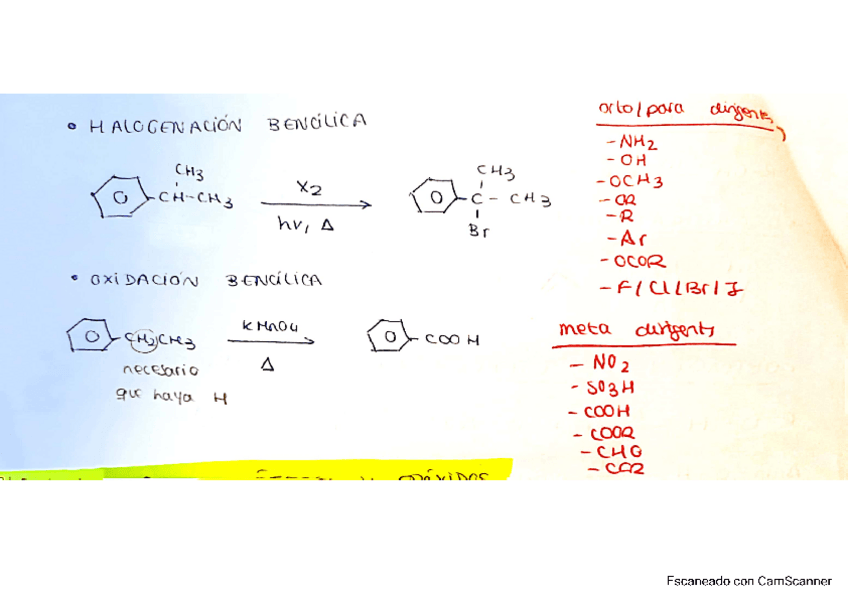 • HALOGENACIÓN BENCÍLICA
CH3
CH-CH3
X2
hν, Δ
CH3
C - CH3
Br
• OXIDACIÓN BENCÍLICA
CH2CH3
KMnO4
Δ
COOH
necesario
que haya H
orto/para dirigents
- NH2
- OH
- OCH3
- OR
- R
- Ar
- OCOR
- F/Cl/Br/I
meta dirigents
- NO2
- SO3H
- COOH
- COOR
- CHO
- COR
Escaneado con CamScanner